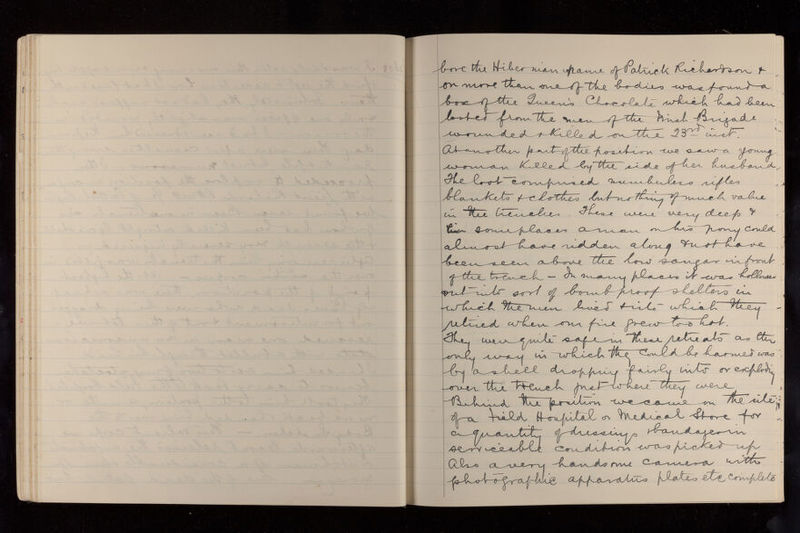 bore the Hibernian name of Patrick Richardson &
on more than one of the bodies was found a
box of the Queen's Chocolate which had been
looted from the men of the Irish Brigade
wounded & killed on the 23rd inst.
At another part of the position we saw a young
woman killed by the side of her husband,
The loot comprised numberless rifles
blankets & clothes but nothing of much value
in the trenches. These were very deep &
in some places a man on his pony could
almost have ridden along & not have
been seen above the low sangar in front
of the trench – In many places it was hollowed
out into sort of bomb proof shelters in
which the men lived & into which they
retired when our fire grew too hot.
They were quite safe in these retreats as the
only way in which they could be harmed was
by a shell dropping fairly into or exploding
over the trench just where they were.
Behind the position we came on the site
of a Field Hospital or Medical Store for
a quantity of dressings & bandages in
serviceable condition was picked up
Also a very handsome camera with
photographic apparatus plates etc complete